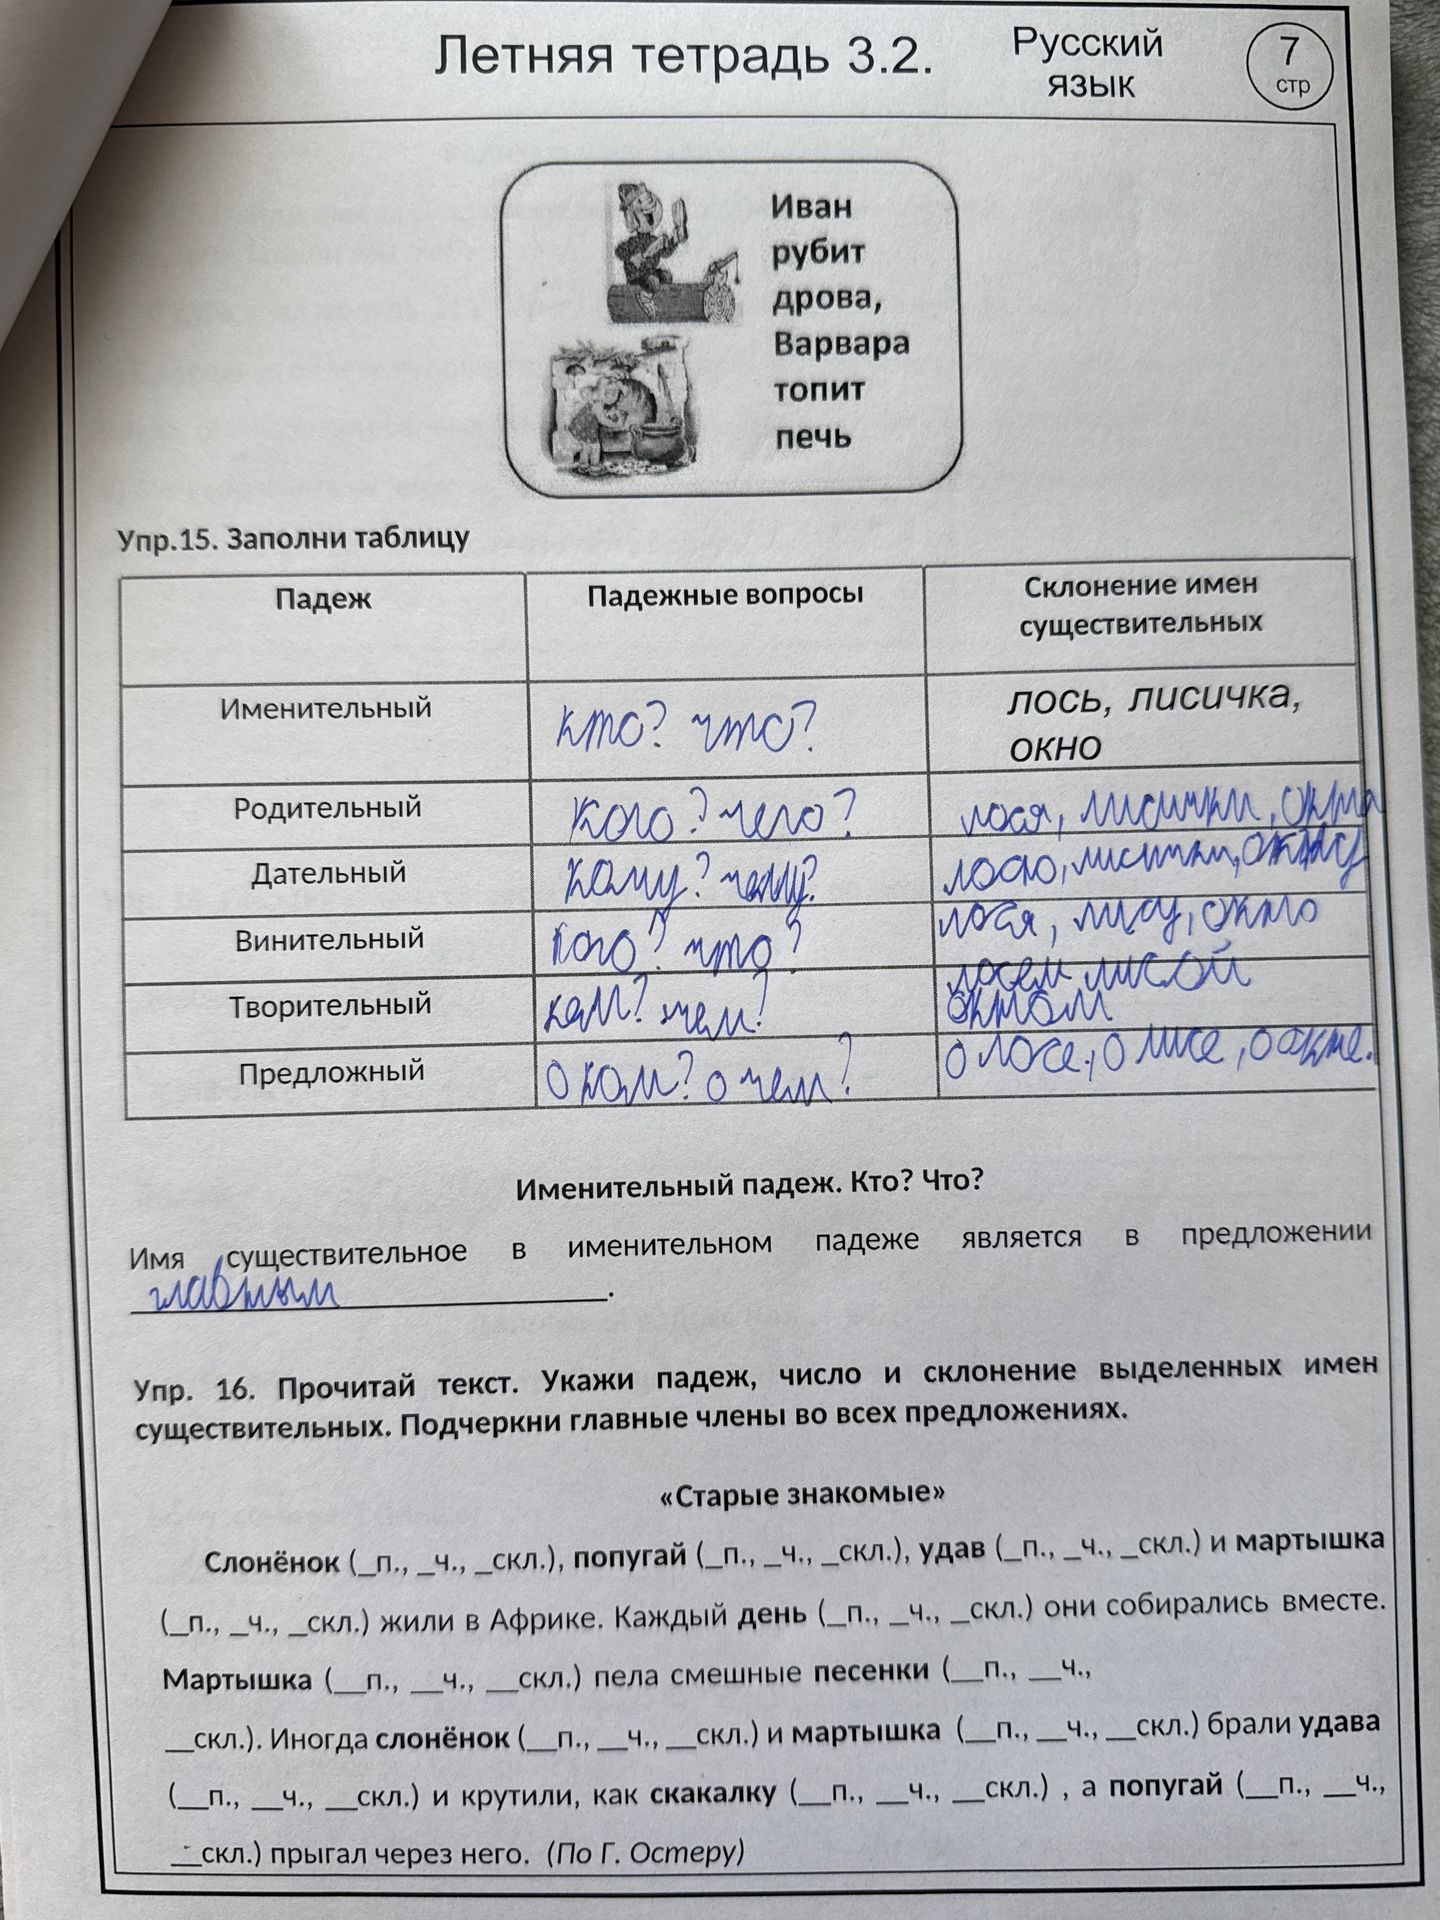 Летняя тетрадь 3.2.
Русский
язык
7
стр
Иван
рубит
дрова,
Варвара
топит
печь
Упр.15. Заполни таблицу
Падеж Падежные вопросы Склонение имен
существительных
Именительный кто? что? лось, лисичка,
окно
Родительный кого? чего? лося, лисички, окна
Дательный кому? чему? лосю, лисички, окну
Винительный кого? что? лося, лису, окно
Творительный кем? чем? лосем лисой
окном
Предложный о ком? о чем? о лосе, о лисе, о окне.
Именительный падеж. Кто? Что?
Имя существительное в именительном падеже является в предложении
главным .
Упр. 16. Прочитай текст. Укажи падеж, число и склонение выделенных имен
существительных. Подчеркни главные члены во всех предложениях.
«Старые знакомые»
Слонёнок (_п., _ч., _скл.), попугай (_п., _ч., _скл.), удав (_п., _ч., _скл.) и мартышка
(_п., _ч., _скл.) жили в Африке. Каждый день (_п., _ч., _скл.) они собирались вместе.
Мартышка (__п., __ч., __скл.) пела смешные песенки (__п., __ч.,
__скл.). Иногда слонёнок (__п., __ч., __скл.) и мартышка (__п., __ч., __скл.) брали удава
(__п., __ч., __скл.) и крутили, как скакалку (__п., __ч., __скл.) , а попугай (__п., __ч.,
__скл.) прыгал через него. (По Г. Остеру)